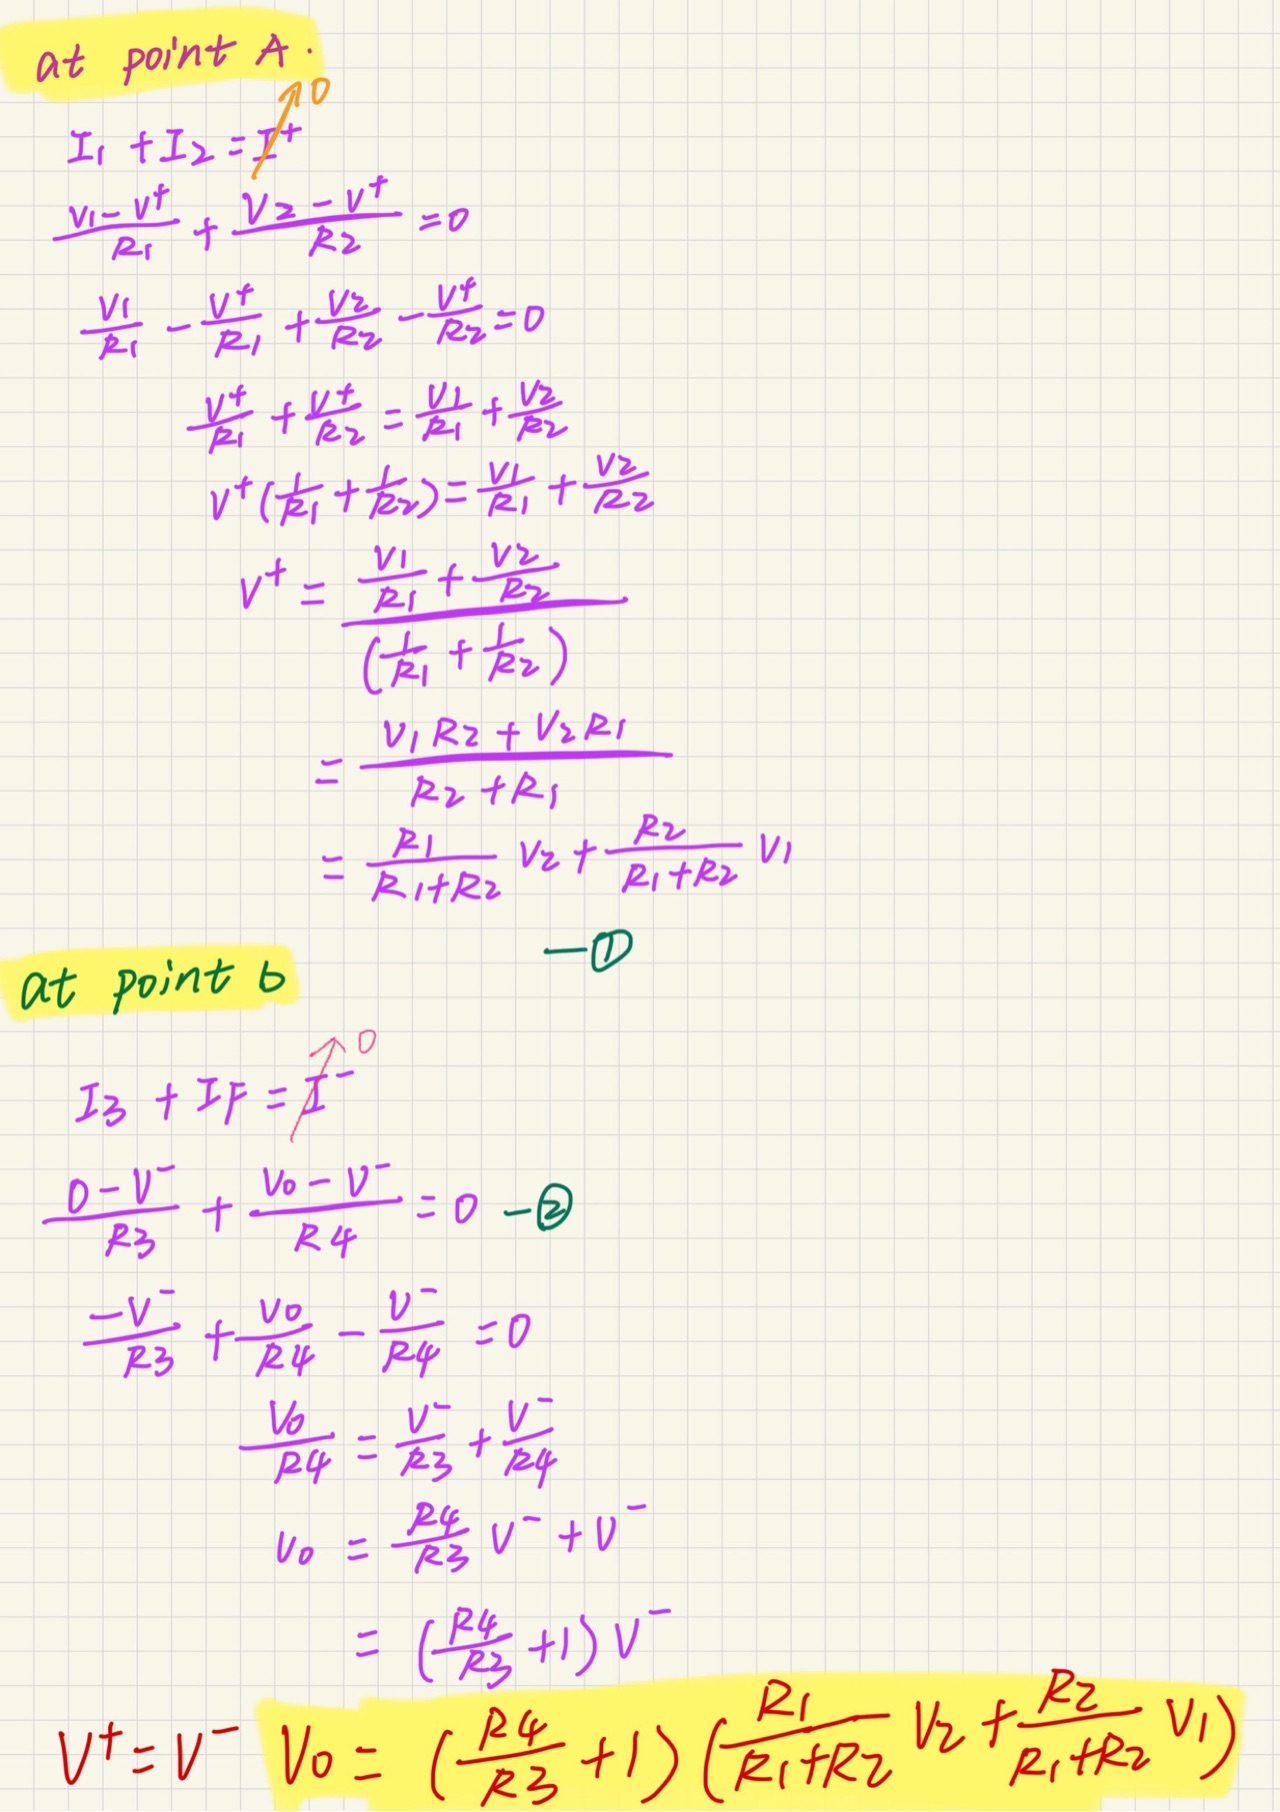 at point A.
I₁ + I₂ = I⁺ → 0
(V₁ - V⁺)/R₁ + (V₂ - V⁺)/R₂ = 0
V₁/R₁ - V⁺/R₁ + V₂/R₂ - V⁺/R₂ = 0
V⁺/R₁ + V⁺/R₂ = V₁/R₁ + V₂/R₂
V⁺(1/R₁ + 1/R₂) = V₁/R₁ + V₂/R₂
V⁺ = (V₁/R₁ + V₂/R₂)/(1/R₁ + 1/R₂)
= (V₁R₂ + V₂R₁)/(R₂ + R₁)
= R₁/(R₁+R₂) V₂ + R₂/(R₁+R₂) V₁
— ①
at point b
I3 + IF = I⁻ → 0
(0 - V⁻)/R3 + (V₀ - V⁻)/R4 = 0 - ②
-V⁻/R3 + V₀/R4 - V⁻/R4 = 0
V₀/R4 = V⁻/R3 + V⁻/R4
V₀ = R4/R3 V⁻ + V⁻
= (R4/R3 + 1) V⁻
V⁺ = V⁻ V₀ = (R4/R3 + 1)(R₁/(R₁+R₂) V₂ + R₂/(R₁+R₂) V₁)